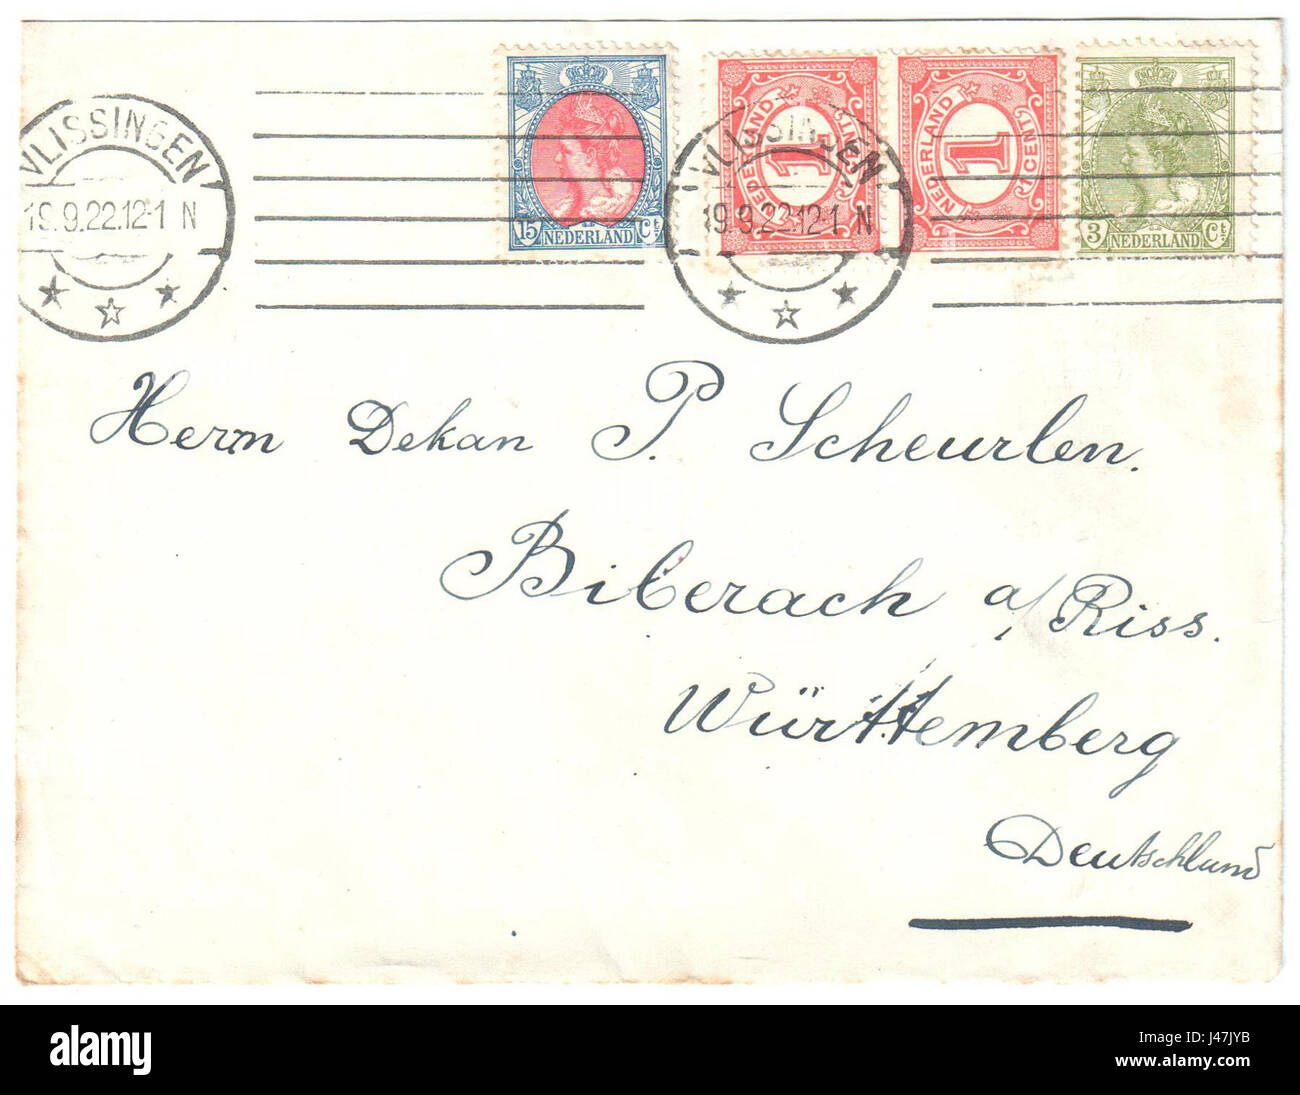 VLISSINGEN
19.9.22.12-1 N
15 NEDERLAND Ct
NEDERLAND 1 CENT
NEDERLAND 1 CENT
3 NEDERLAND Ct
VLISSINGEN
19.9.22.12-1 N
Herrn Dekan P. Scheurlen.
Biberach a/Riss.
Württemberg
Deutschland
alamy stock photo
J47JYB
www.alamy.com